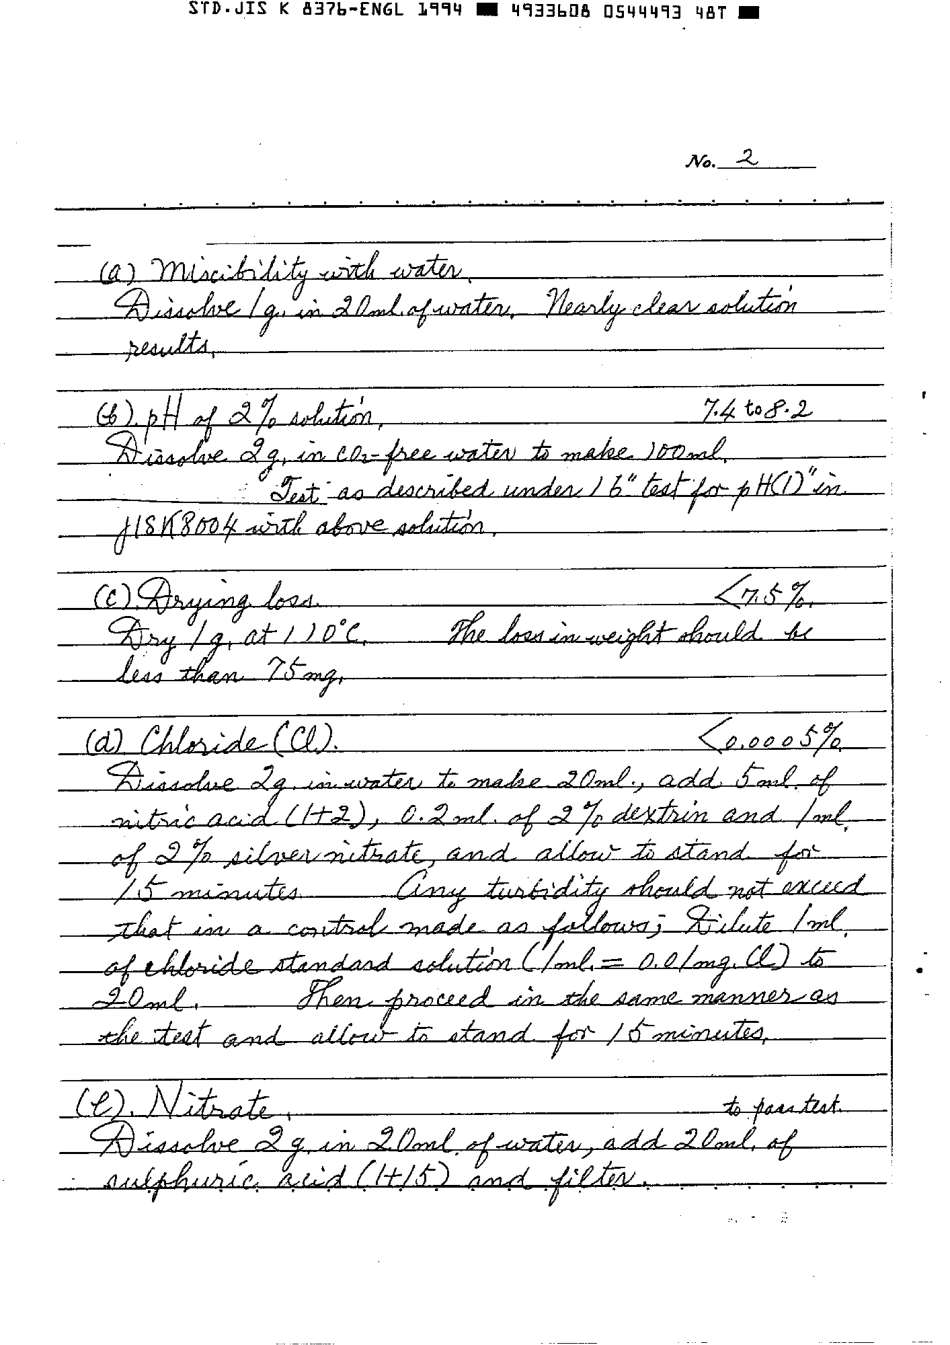 STD.JIS K 8376-ENGL 1994 ■ 4933608 0544493 48T ■
No. 2
(a) Miscibility with water.
Dissolve 1g. in 20ml. of water. Nearly clear solution
results.
(b). pH of 2% solution. 7.4 to 8.2
Dissolve 2g. in CO2-free water to make 100ml.
Test as described under 16 "test for pH(1)" in
JIS K 8004 with above solution.
(c). Drying loss. <7.5%.
Dry 1g. at 110°C. The loss in weight should be
less than 75mg.
(d) Chloride (Cl). <0.0005%.
Dissolve 2g. in water to make 20ml., add 5ml. of
nitric acid (1+2), 0.2ml. of 2% dextrin and 1ml.
of 2% silver nitrate, and allow to stand for
15 minutes. Any turbidity should not exceed
that in a control made as follows; Dilute 1ml.
of chloride standard solution (1ml. = 0.01mg. Cl) to
20ml. Then proceed in the same manner as
the test and allow to stand for 15 minutes.
(e). Nitrate. to pass test.
Dissolve 2g. in 20ml. of water, add 20ml. of
sulphuric acid (1+15) and filter.